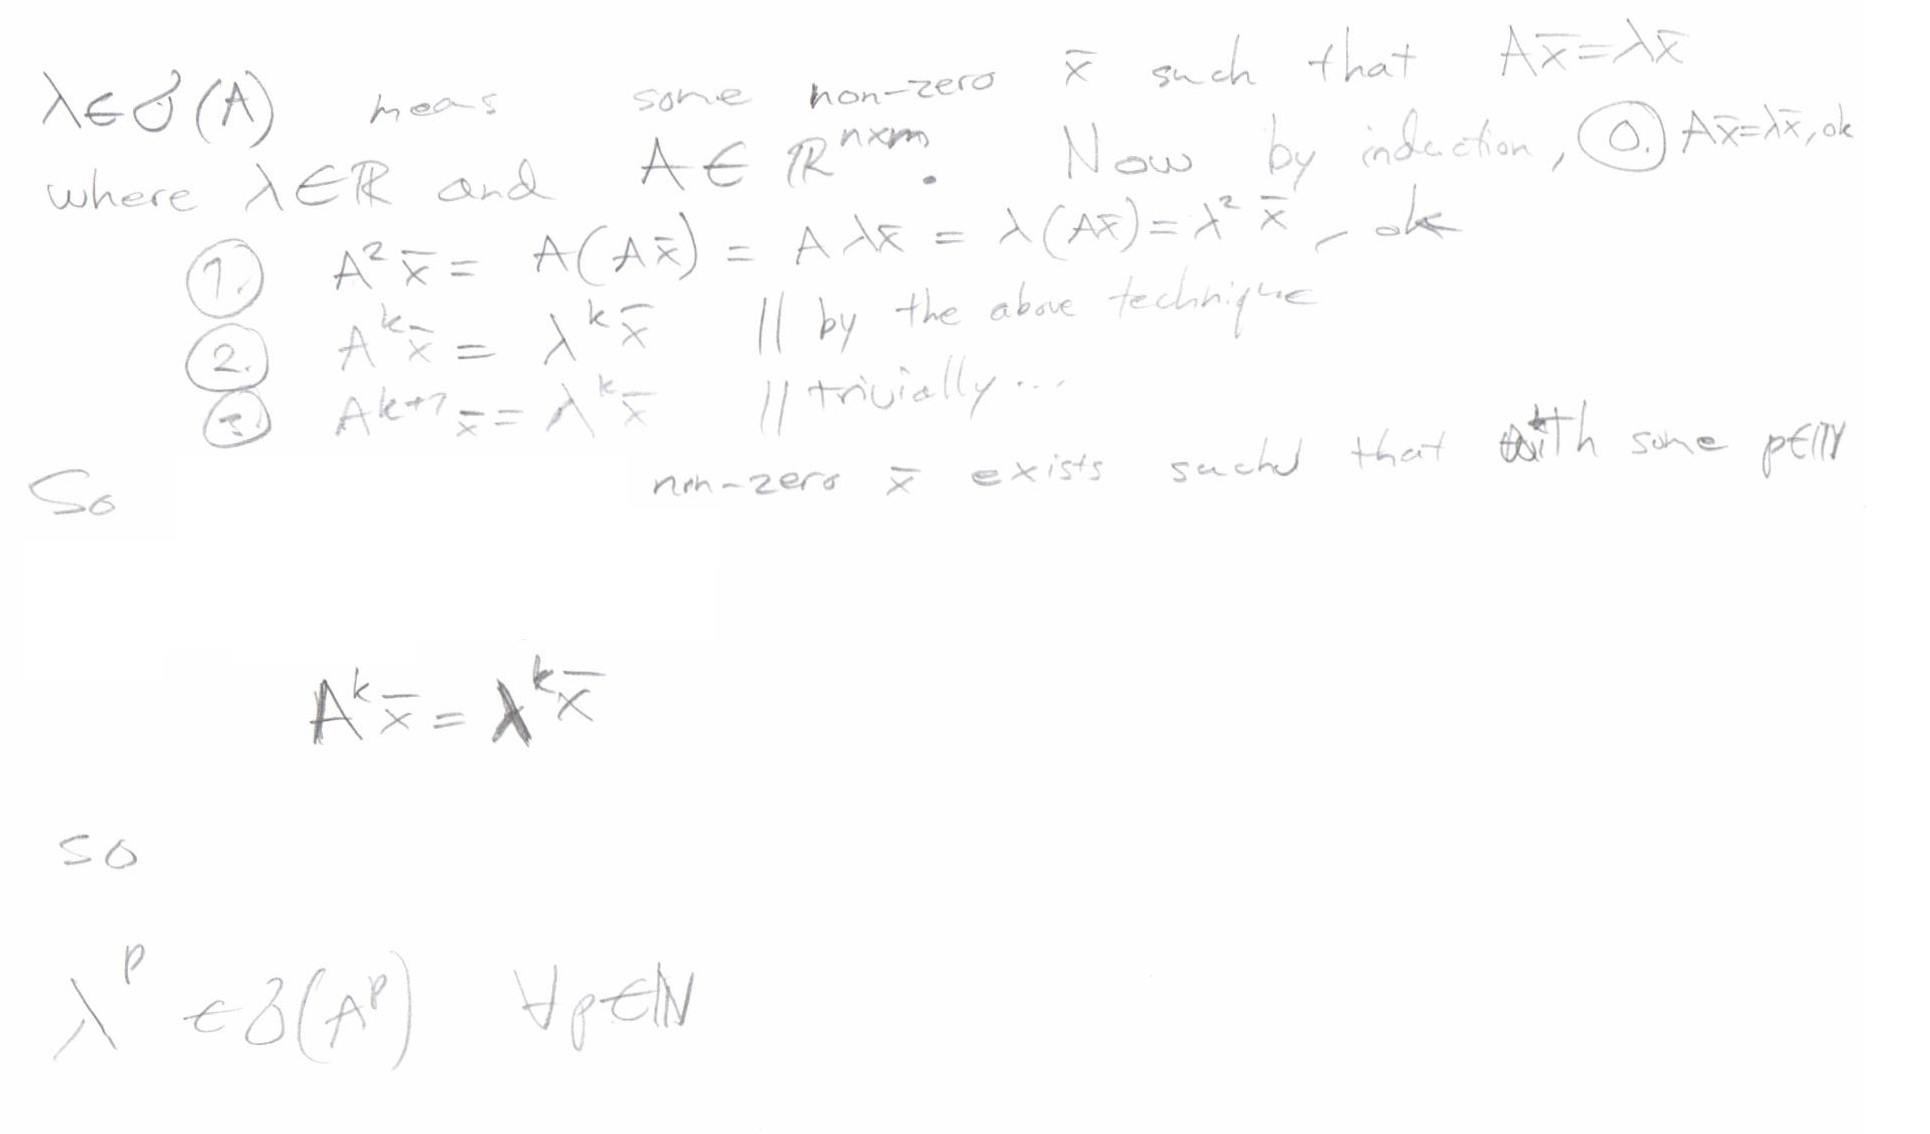 λ∈σ(A) means some non-zero x̄ such that Ax̄=λx̄
where λ∈ℝ and A∈ℝ^{n×m}. Now by induction, 0. Ax̄=λx̄, ok
1. A²x̄ = A(Ax̄) = Aλx̄ = λ(Ax̄) = λ²x̄, ok
2. A^k x̄ = λ^k x̄ || by the above technique
3. A^{k+1} x̄ = λ^k x̄ || trivially...
So non-zero x̄ exists such that with some p∈ℕ
A^k x̄ = λ^k x̄
so
λ^p ∈ σ(A^p) ∀p∈ℕ